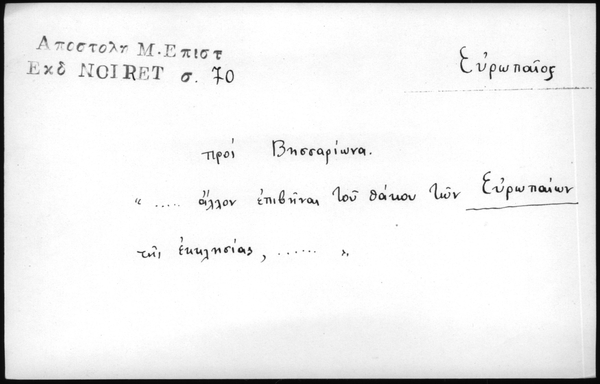 Αποστολη Μ. Επιστ
Εκδ NOIRET σ. 70
Εὐρωπαῖος
πρὸς Βησσαρίωνα.
“ ..... ἄλλον ἐπιβῆναι τοῦ θάκου τῶν Εὐρωπαίων
τῆς ἐκκλησίας, ...... ”.